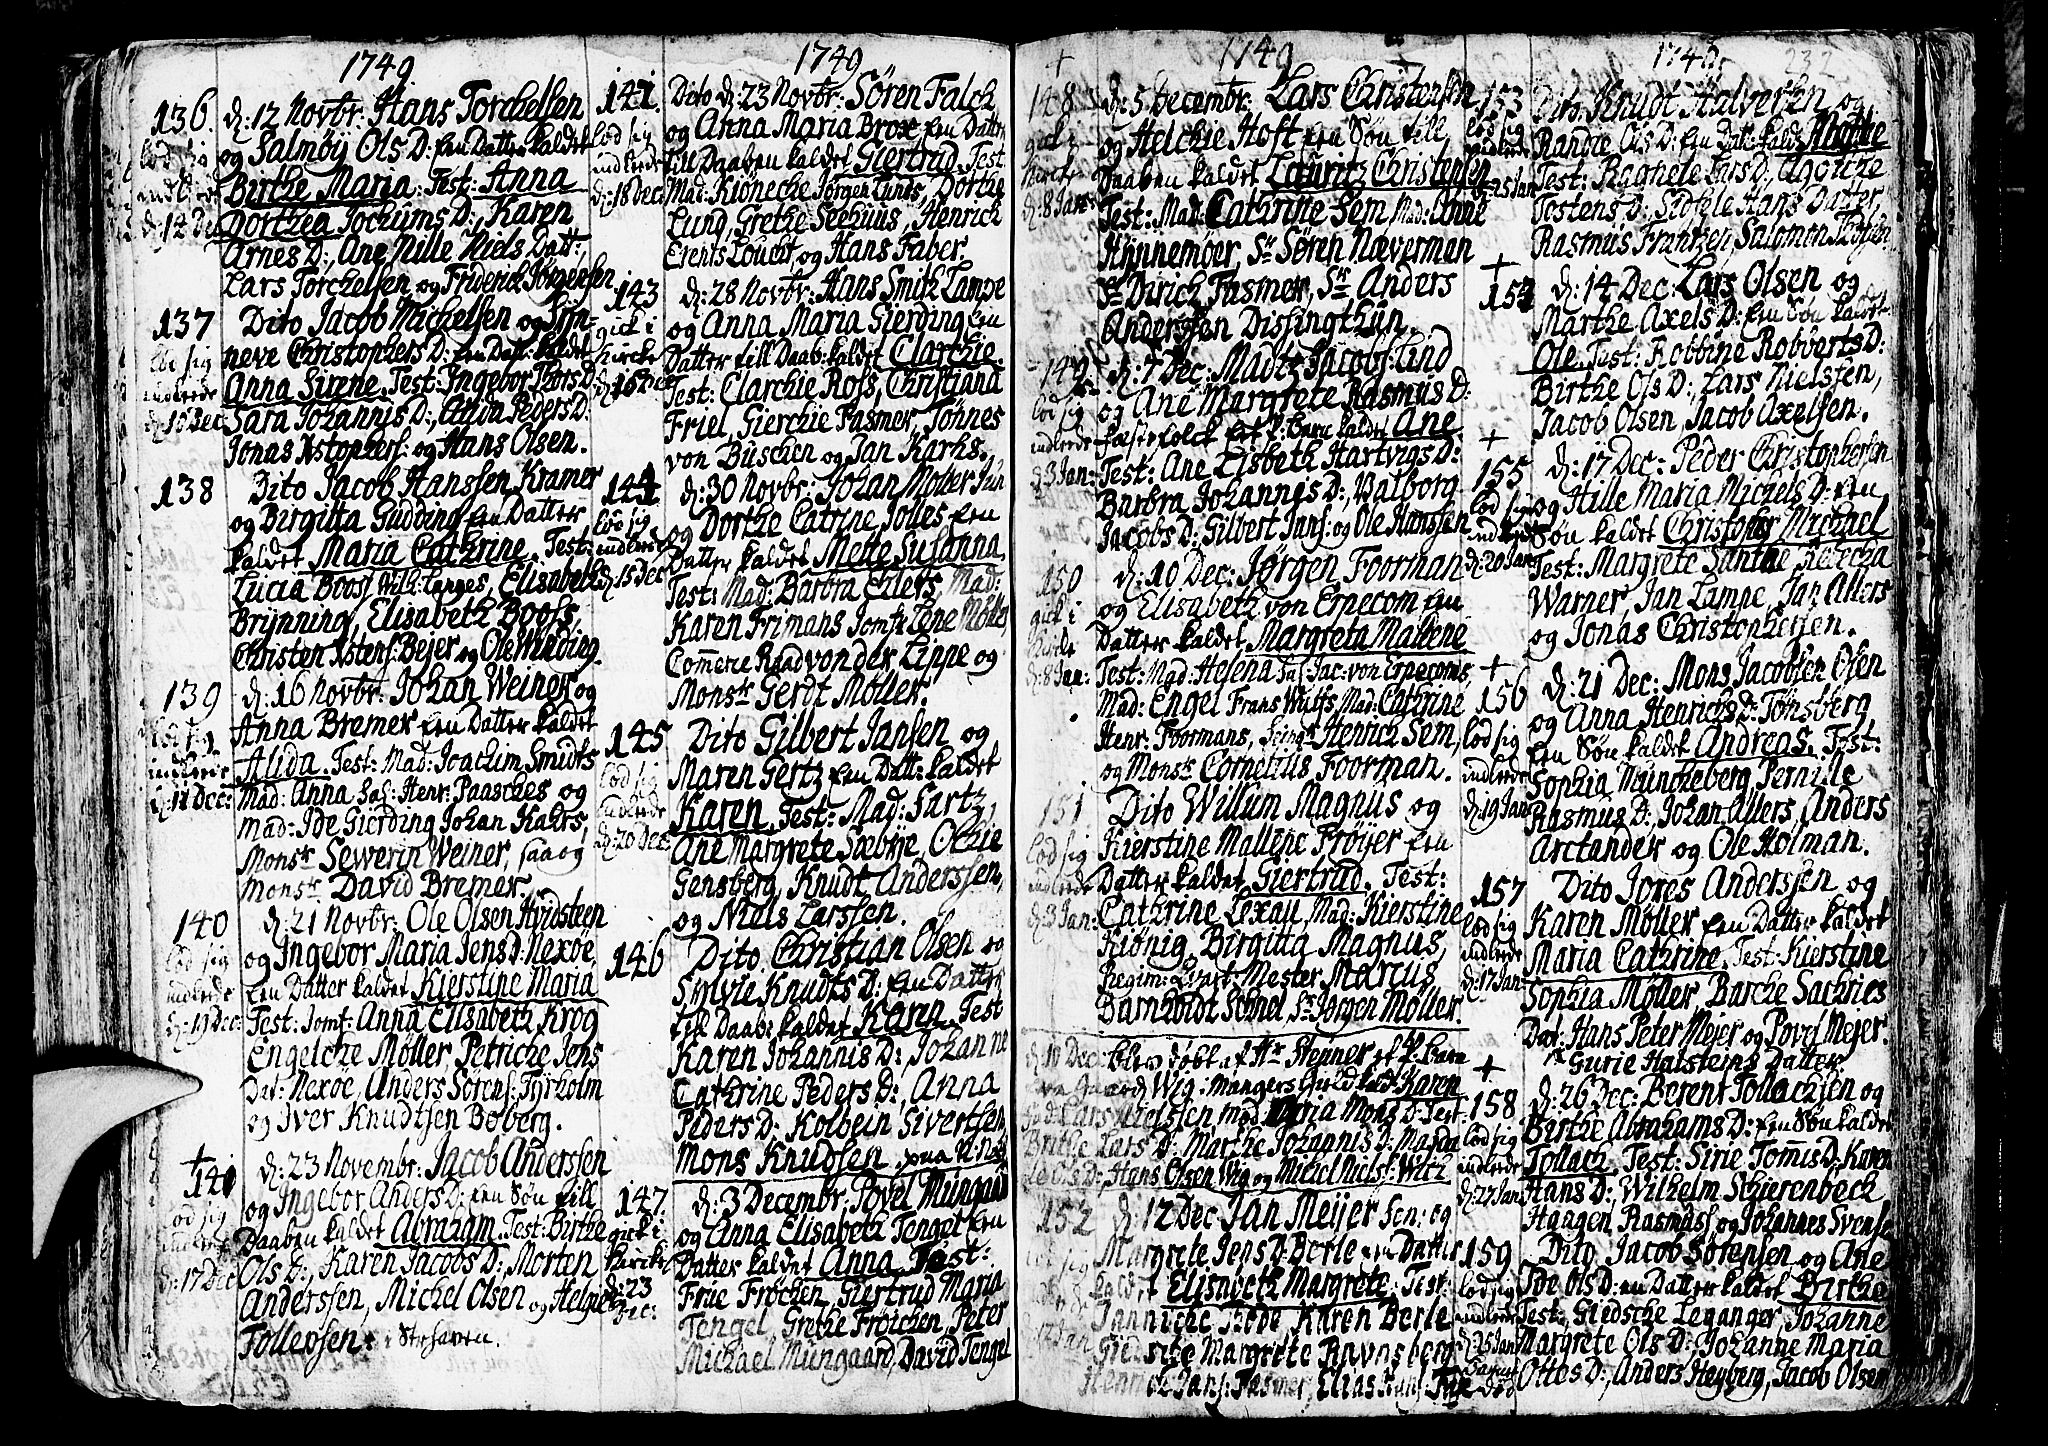 1749
136.
lod sig
indlede
d: 12 Dec
d: 12 Novbr: Hans Torchelsen
og Salmøy Ols D: Een Datter kaldet
Berthe Maria. Test: Anna
Dorthea Jochums D:, Karen
Arnes D:, Ane Nille Niels Datt:,
Lars Torchelsen og Friderich Jørgensen
137
lod sig
indlede
Dito Jacob Michelsen og Syn-
neve Christophers D: Een Datt: kaldet
Anna Sirene. Test: Ingebor Thors D:
Sara Johannis D:, Alida Peders D:
Jonas Xstophers: og Hans Olsen.
138
Dito Jacob Hanssen Kramer
og Birgitta Gudding Een Datter
kaldet Maria Cathrine. Test:
Lucia Booss Wilh: Langes, Elisabeth
Brynning, Elisabeth Booss,
Christen Xstens: Bejer og Ole Winding.
139
lod sig
indlede
d: 11 Dec:
d: 16 Novbr: Johan Weiner og
Anna Bremer Een Datter kaldet
Alida. Test: Mad: Joachim Smidts
Mad: Anna Sal: Henr: Paasches og
Mad: Ide Gierding Johan Kahrs,
Monsr Sewerin Weiner, saa og
Monsr David Bremer
140
lod sig
indlede
d: 11 Dec:
d: 21 Novbr: Ole Olsen Hvidsteen
og Ingebor Maria Jens D: Nexøe,
Een Datter kaldet Kierstine Maria
Test: Jomf: Anna Elisabeth Krog
Engelche Møller, Petriche Jens
Dat: Nexøe, Anders Sørens: Fyrholm
og Iver Knudtsen Boberg.
+
141
lod sig
indlede
d: 17 Dec
d: 23 Novembr: Jacob Anderssen
og Ingebor Anders D: Een Søn till
Daaben kaldet Abraham. Test: Birthe
Ols D:, Karen Jacobs D:, Morten
Anderssen, Michel Olsen og Helge
Tollepsen
1749
141.
lod sig
indlede
d: 18 Dec:
Dito d: 23 Novbr: Søren Falch
og Anna Maria Brox Een Datter
till Daaben kaldet Giertrud. Test
Mad: Kiønecke Jørgen Lunds, Dorthe
Lund, Grethe Seehuus, Henrich
Erents Loucht, og Hans Faber.
143
gick i
Kircke
d: 16 Dec
d: 28 Novbr: Hans Smith Lampe
og Anna Maria Gierding Een
Datter till Daab: kaldet Clarchie.
Test: Clarchie Ross, Christiana
Friel, Gierchie Fasmer, Tønnes
von Büschen og Jan Karhs.
144
lod sig
indlede
d: 15 Dec
d: 30 Novbr: Johan Møller Jun
og Dorthe Catrine Jolles Een
Datter kaldet Mette Susanna
Test: Mad: Barbra Ehlers, Mad:
Karen Frimans Jomfr Lene Møller,
Commerce Raad von der Lippe og
Monsr Gerdt Møller.
145
lod sig
indlede
d: 20 Dec:
Dito Gilbert Jansen og
Maren Gertz Een Datt: kaldet
Karen. Test: Mad: Fartz,
Ane Margrete Sæbye, Olchie
Gensberg, Knudt Anderssen,
og Niels Larssen.
146
Dito Christian Olsen og
Sylvie Knudts D: Een Datter
till Daab: kaldet Karen. Test
Karen Johannis D:, Johanne
Cathrine Peders D:, Anna
Peders D: Kolbein Sivertsen,
Mons Knudsen
147.
gick i
Kircke
d: 23
Dec:
d: 3 Decembr: Povel Mungaard
og Anna Elisabeth Tengel Een
Datter kaldet Anna. Test:
Frue Frøchen, Giertrud Maria
Tengel, Grethe Frøichen, Peter
Michael Mungaard, David Tengel
+ 1749 +
148
gick i
Kircke
d: 8 Jan:
d: 5 Decembr: Lars Christensen
og Helchie Hoft Een Søn till
Daaben kaldet Lauritz Christensen
Test: Mad: Cathrine Sem, Mad: Anne
Hynnemoer, Sr Søren Næverman
Sr Dirich Fasmer, Sr Anders
Anderssen Dissingthun.
149
lod sig
indlede
d: 3 Jan:
d: 7 Dec: Madts Jacobs: Lind
og Ane Margrete Rasmus D:
Fæstefolck Eet P: Barn kaldet Ane
Test: Ane Lisbeth Hartvigs D:
Barbra Johannis D:, Valborg
Jacobs D: Gilbert Jans: og Ole Hanssen
150
gick i
Kircke
d: 8 Jan:
d: 10 Dec: Jørgen Foorman
og Elisabeth von Erpecom Een
Datter kaldet Margreta Mallene
Test: Mad: Helena Sal: Jac: von Erpecoms
Mad: Engel Frans Wulfs, Mad: Cathrine
Henr: Foormans, Henrich Sem,
og Monsr Cornelius Foorman.
151
lod sig
indlede
d: 3 Jan:
Dito Willum Magnus og
Kierstine Mallene Frøyer Een
Datter kaldet Giertrud. Test:
Cathrine Lexau, Mad: Kierstine
Kiønig, Birgitta Magnus,
Regim: Qvart: Mester Marcus
Barnholdt Schnel, Sr Jørgen Møller.
d: 10 Dec blev døbt af Hr Steuner et Barn
Wig: Mangers Gield kaldt Karen
Lars Nielssen mod: Maria Mons D: Test:
Brithe Lars D: Marthe Johannis D: Magda
le Ols D: Hans Olsen Wig og Michel Niels: Witz
152
lod sig
d: 12 Dec: Jan Meijer Sen: og
Margrete Jens D: Berle een Datter
kaldet Elisabeth Margrete: Test:
Janniche Thode Karen Berle
Margrete Ravnsberg
Jans: Fasmer, Elias
1749 232
153
lod sig
indlede
d: 25 Jan
Dito Knudt Halversen og
Randie Ols D: Een Datt: kald: Mette
Test: Ragnele Lars D:, Agothe
Tostens D:, Sidsele Hans Datter,
Rasmus Frantzen, Salomon
+
154
d: 14 Dec: Lars Olsen og
Marthe Axels D: Een Søn kaldet
Ole. Test: Robbine Robberts D:
Birthe Ols D:, Lars Nielssen,
Jacob Olsen, Jacob Axelsen.
+
155
lod sig
indlede
d: 20 Jan
d: 17 Dec: Peder Christophersen
og Hille Maria Michels D: Een
Søn kaldet Christopher Michael
Test: Margrete Santhe, Rebecka
Warner, Jan Lampe, Jan Allers
og Jonas Christophersen.
+
156
lod sig
indlede
d: 19 Jan
d: 21 Dec: Mons Jacobsen Osen
og Anna Henrichs D: Tønsberg
Een Søn kaldet Andreas. Test:
Sophia Munckeberg Pernille
Rasmus D: Johan Allers, Anders
Arctander og Ole Holman.
157
lod sig
indlede
d: 17 Jan
Dito Jores Anderssen og
Karen Møller Een Datter kaldet
Maria Cathrine. Test: Kierstine
Sophia Møller, Barche Sachries
Dat: Hans Peter Mejer og Povel Mejer.
Gurie Halsteins Datter
+
158
lod sig
indlede
d: 22 Jan
d: 26 Dec: Berent Tollachsen og
Birthe Abrahams D: Een Søn kaldet
Tollach. Test: Sirie Tommis D: Karen
Hans D: Wilhelm Schierenbeck
Haagen Rasmuss: og Johannes Svens:
159
lod sig
indlede
d: 25 Jan
Dito Jacob Sørensen og Ane
Ide Ols D: en Datter kaldet Birthe
Test: Giedsche Leganger, Johanne
Margrete Ols D: Johanne Maria
Ottes D:, Anders Heyberg, Jacob Olsen